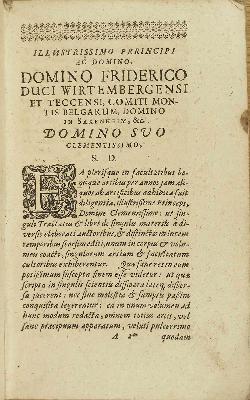 ILLUSTRISSIMO PRINCIPI
AC DOMINO,
DOMINO FRIDERICO
DUCI WIRTEMBERGENSI
ET TECCENSI, COMITI MON-
TIS BELGARUM, DOMINO
IN &c.
DOMINO SUO
CLEMENTISSIMO,
S. D.
EA pleriſque in facultatibus bo-
niſque artibus per annos jam ali-
quot ab artificibus adhibita fuit
diligentia, illuſtriſſime princeps,
Domine Clementiſſime: ut ſin-
guli Tractatus & libri de ſingulis materiis à di-
verſis elaborati auctoribus, & diſtinctis in lucem
temporibus ſeorſim editi, unum in corpus & volu-
men coacti, ſingularum artium & facultatum
cultoribus exhiberentur. Quæ ſanè res tum eam
potiſſimùm ſuſcepta finem eſſe videtur: ut quæ
ſcripta in ſingulis ſcientiis diſſipata antea, diſper-
ſa jacerent: nec ſine moleſtia & ſumptu paſſim
conquiſita legerentur: ea in unum volumen ad
hunc modum redacta, omnem totius artis, vel
ſanè præcipuum apparatum, veluti pulcerrimo
A 2 quodam